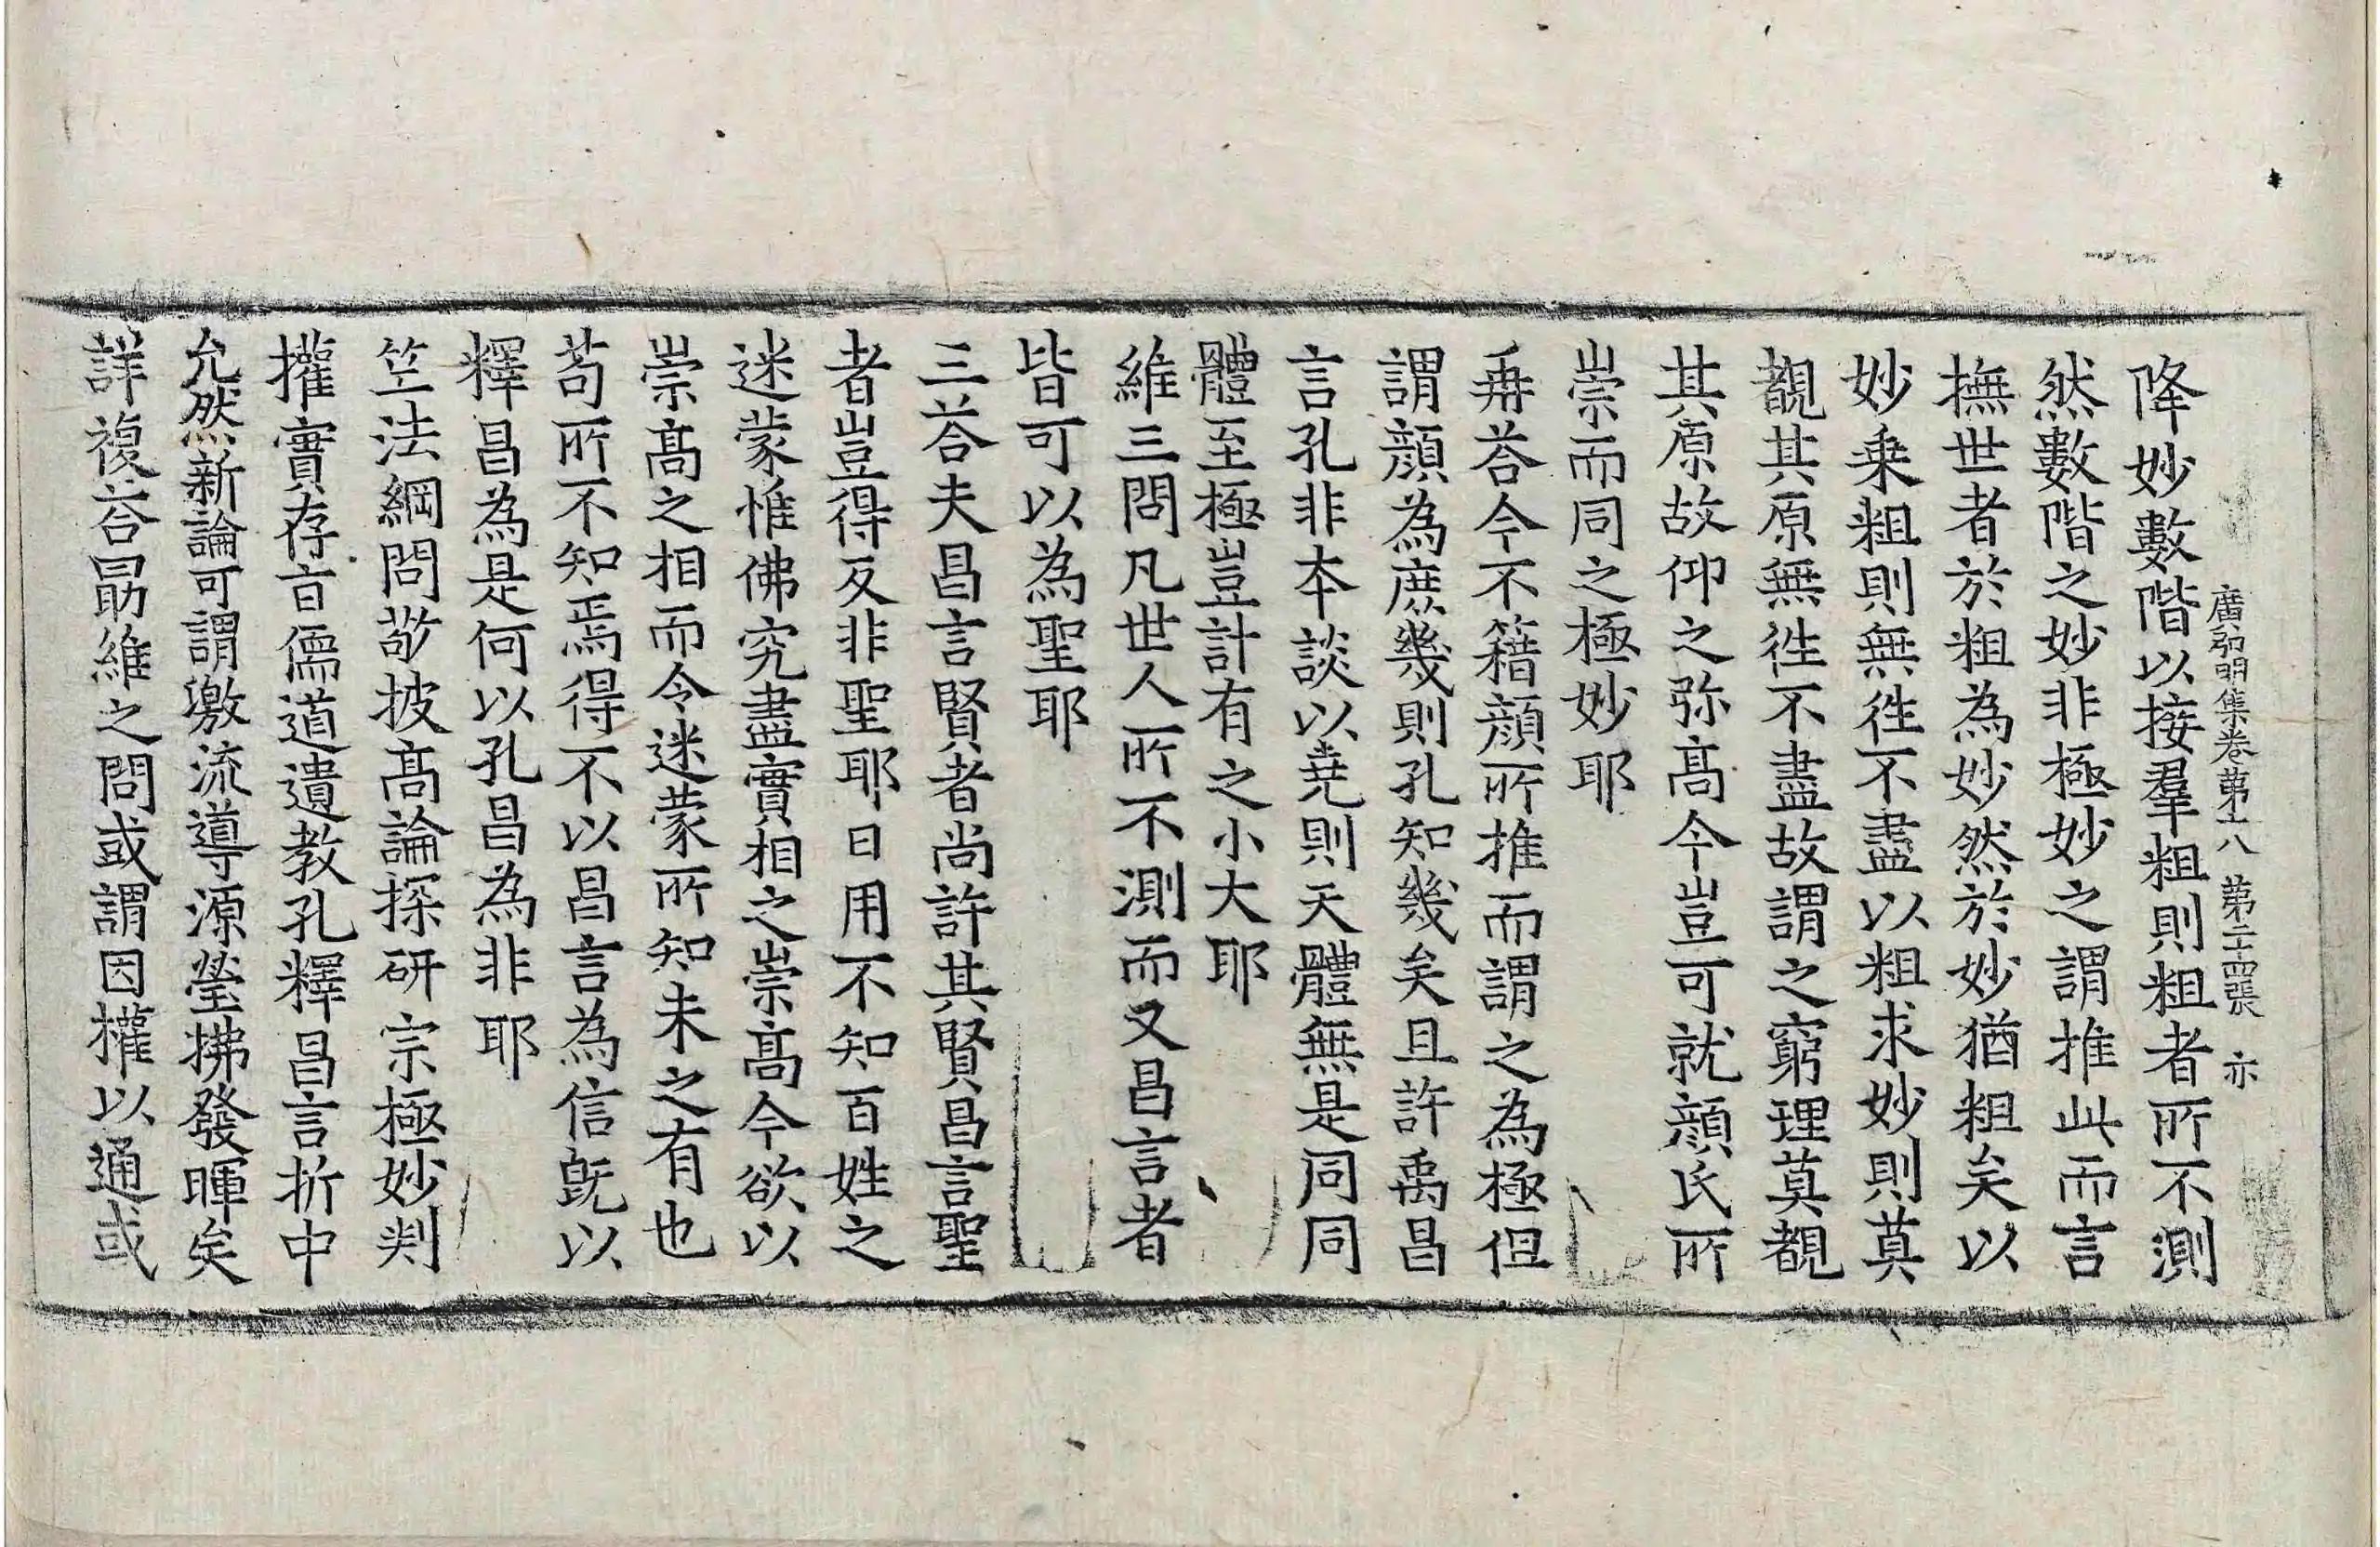 廣弘明集卷第十八　第二十四張　亦
降妙數階以接羣粗則粗者所不測
然數階之妙非極妙之謂推此而言
撫世者於粗為妙然於妙猶粗矣以
妙乗粗則無徃不盡以粗求妙則莫
覩其原無徃不盡故謂之窮理莫覩
其原故仰之弥髙今豈可就顔氏所
崇而同之極妙耶
再荅今不籍顔所推而謂之為極但
謂顔為庶幾則孔知幾矣且許禹昌
言孔非本談以尭則天體無是同同
體至極豈計有之小大耶
維三問凡世人所不測而又昌言者
皆可以為聖耶
三荅夫昌言賢者尚許其賢昌言聖
者豈得反非聖耶日用不知百姓之
迷蒙惟佛究盡實相之崇髙今欲以
崇髙之相而令迷蒙所知未之有也
苟所不知焉得不以昌言為信旣以
釋昌為是何以孔昌為非耶
竺法綱問敬披髙論探研宗極妙判
權實存亡儒道遺教孔釋昌言折中
允然新論可謂激流導源瑩拂發暉矣
詳複荅勗維之問或謂因權以通或